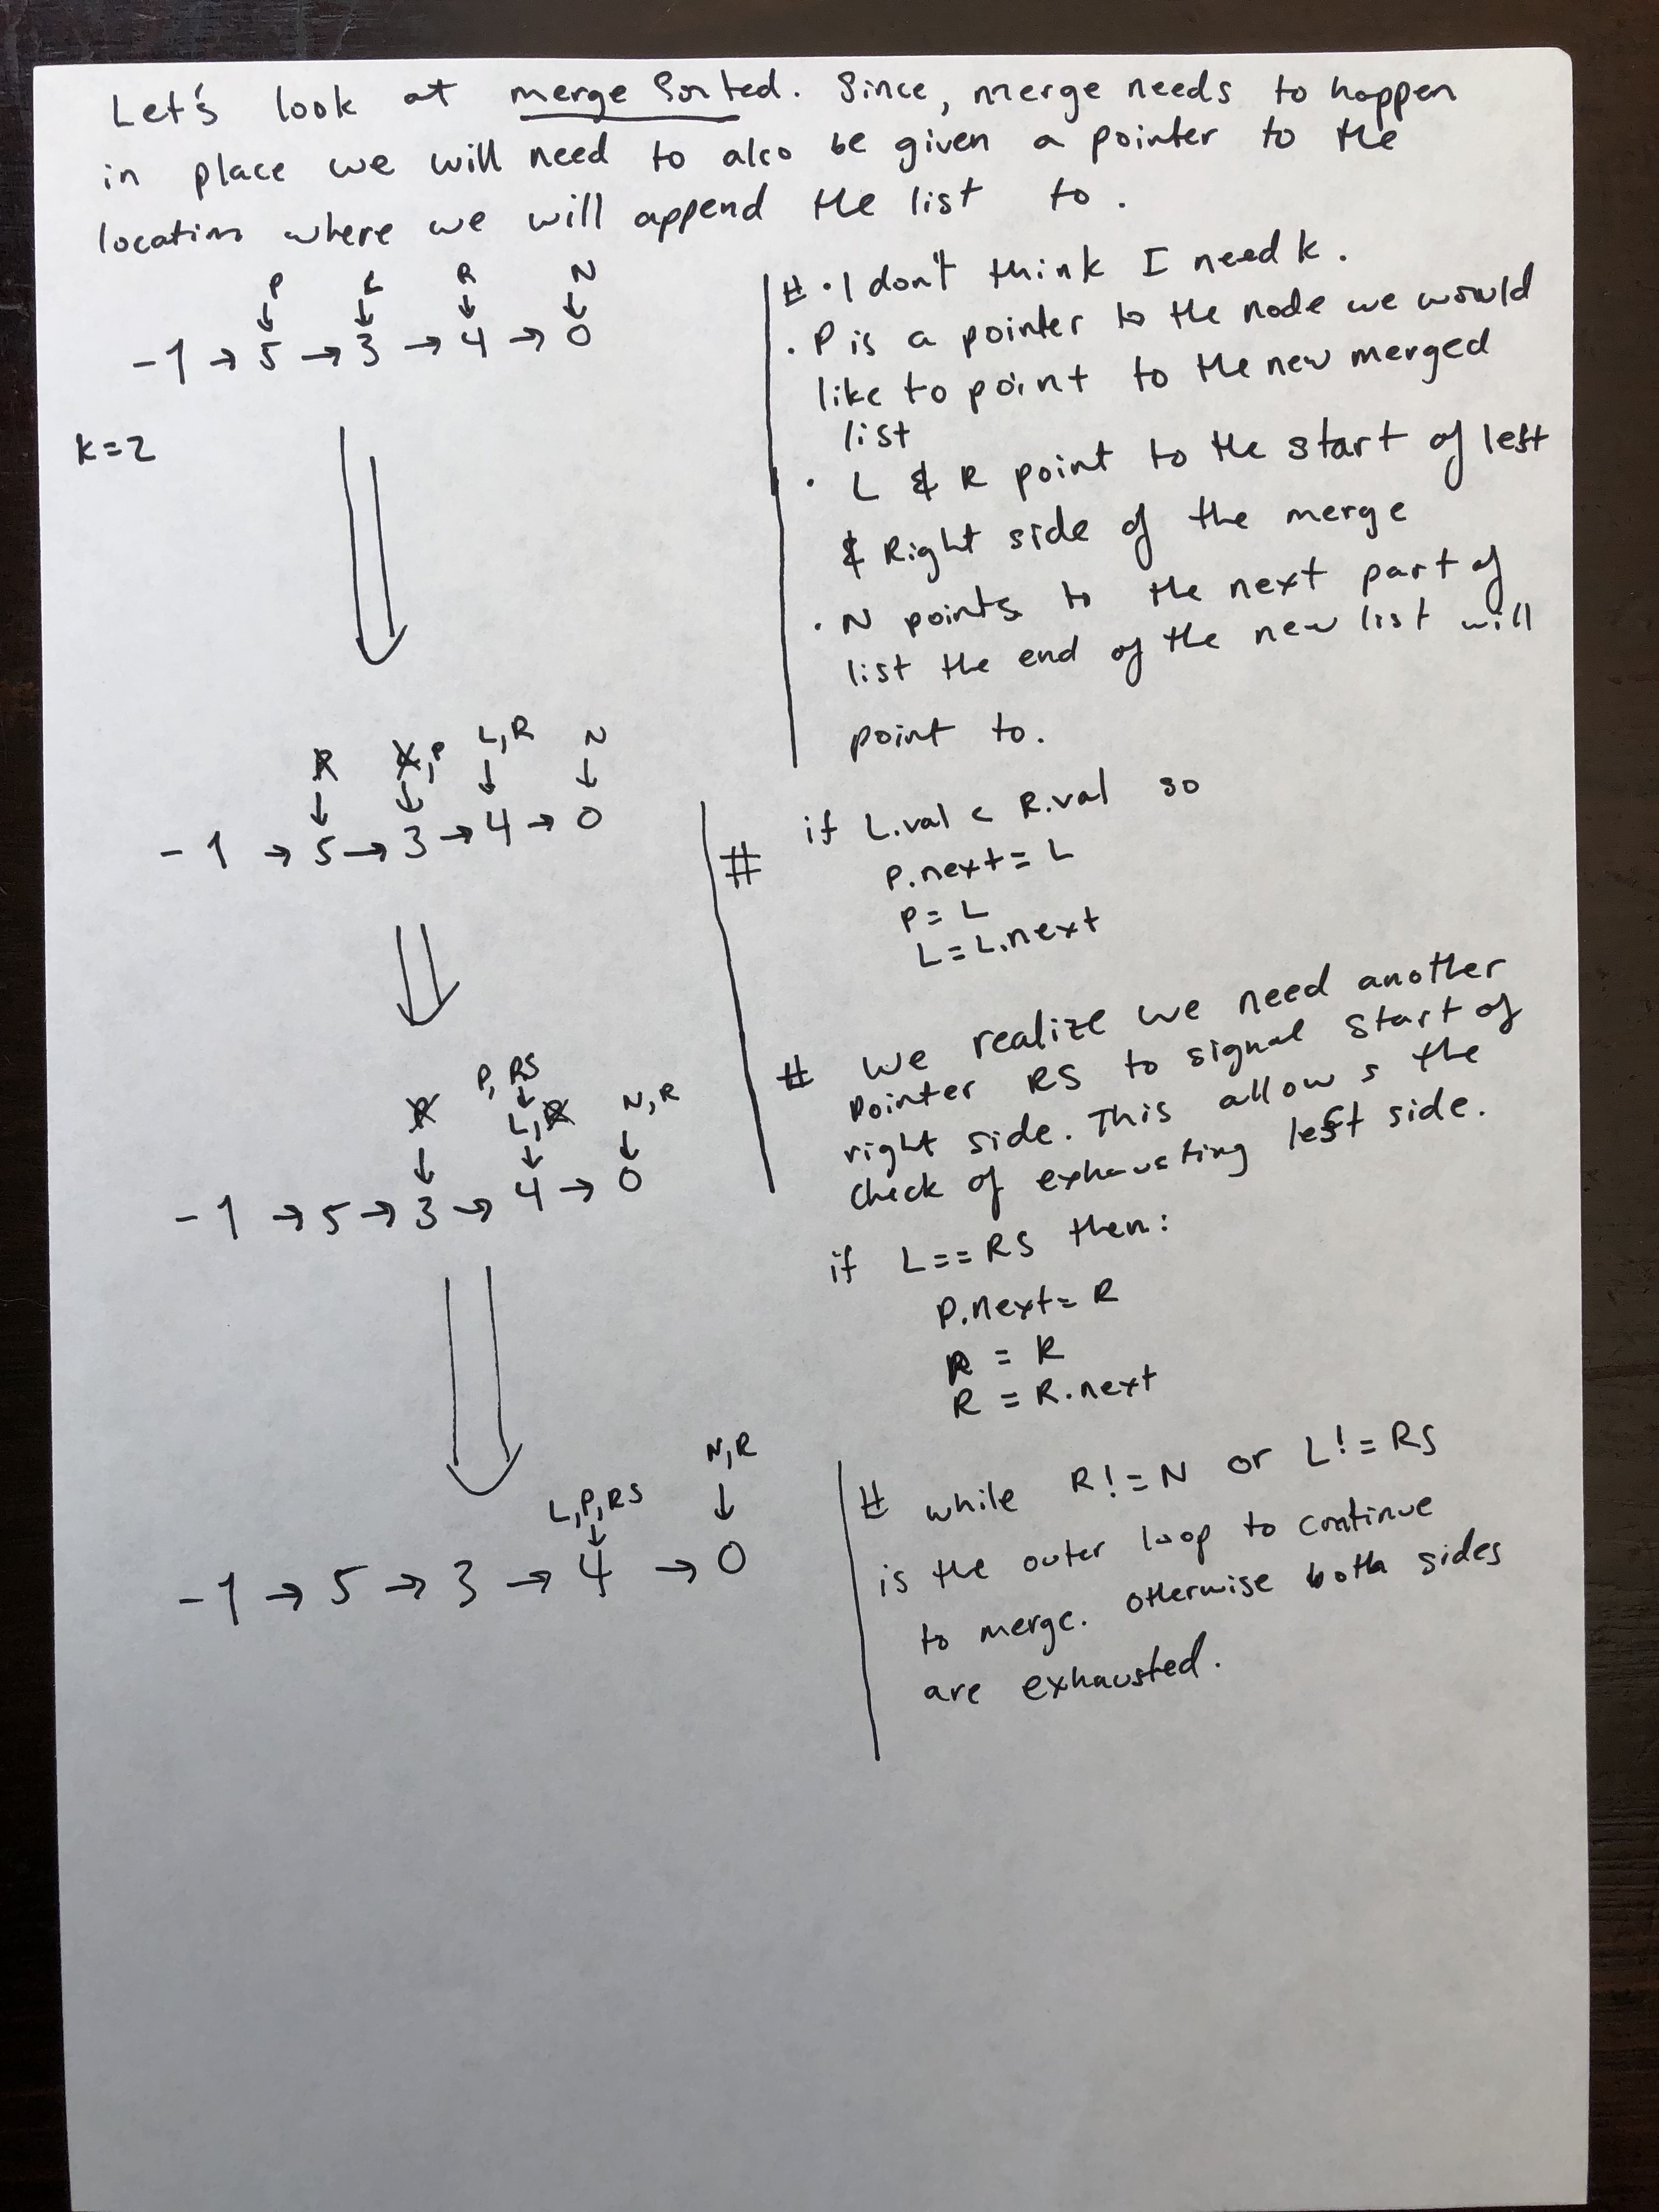 Let's look at merge Sorted. Since, merge needs to happen
in place we will need to also be given a pointer to the
location where we will append the list to.
P L R N
↓ ↓ ↓ ↓
-1 → 5 → 3 → 4 → 0
k=2
# · I don't think I need k.
· P is a pointer to the node we would
like to point to the new merged
list
· L & R point to the start of left
& Right side of the merge
· N points to the next part of
list the end of the new list will
point to.
P L,P L,R N
↓ ↓ ↓ ↓
-1 → 5 → 3 → 4 → 0
# if L.val < R.val so
P.next = L
P = L
L = L.next
# we realize we need another
pointer RS to signal start of
right side. This allows the
check of exhausting left side.
P, RS
↓
P L,R N,R
↓ ↓ ↓
-1 → 5 → 3 → 4 → 0
if L == RS then:
P.next = R
P = R
R = R.next
L,P,RS N,R
↓ ↓
-1 → 5 → 3 → 4 → 0
# while R != N or L != RS
is the outer loop to continue
to merge. otherwise both sides
are exhausted.